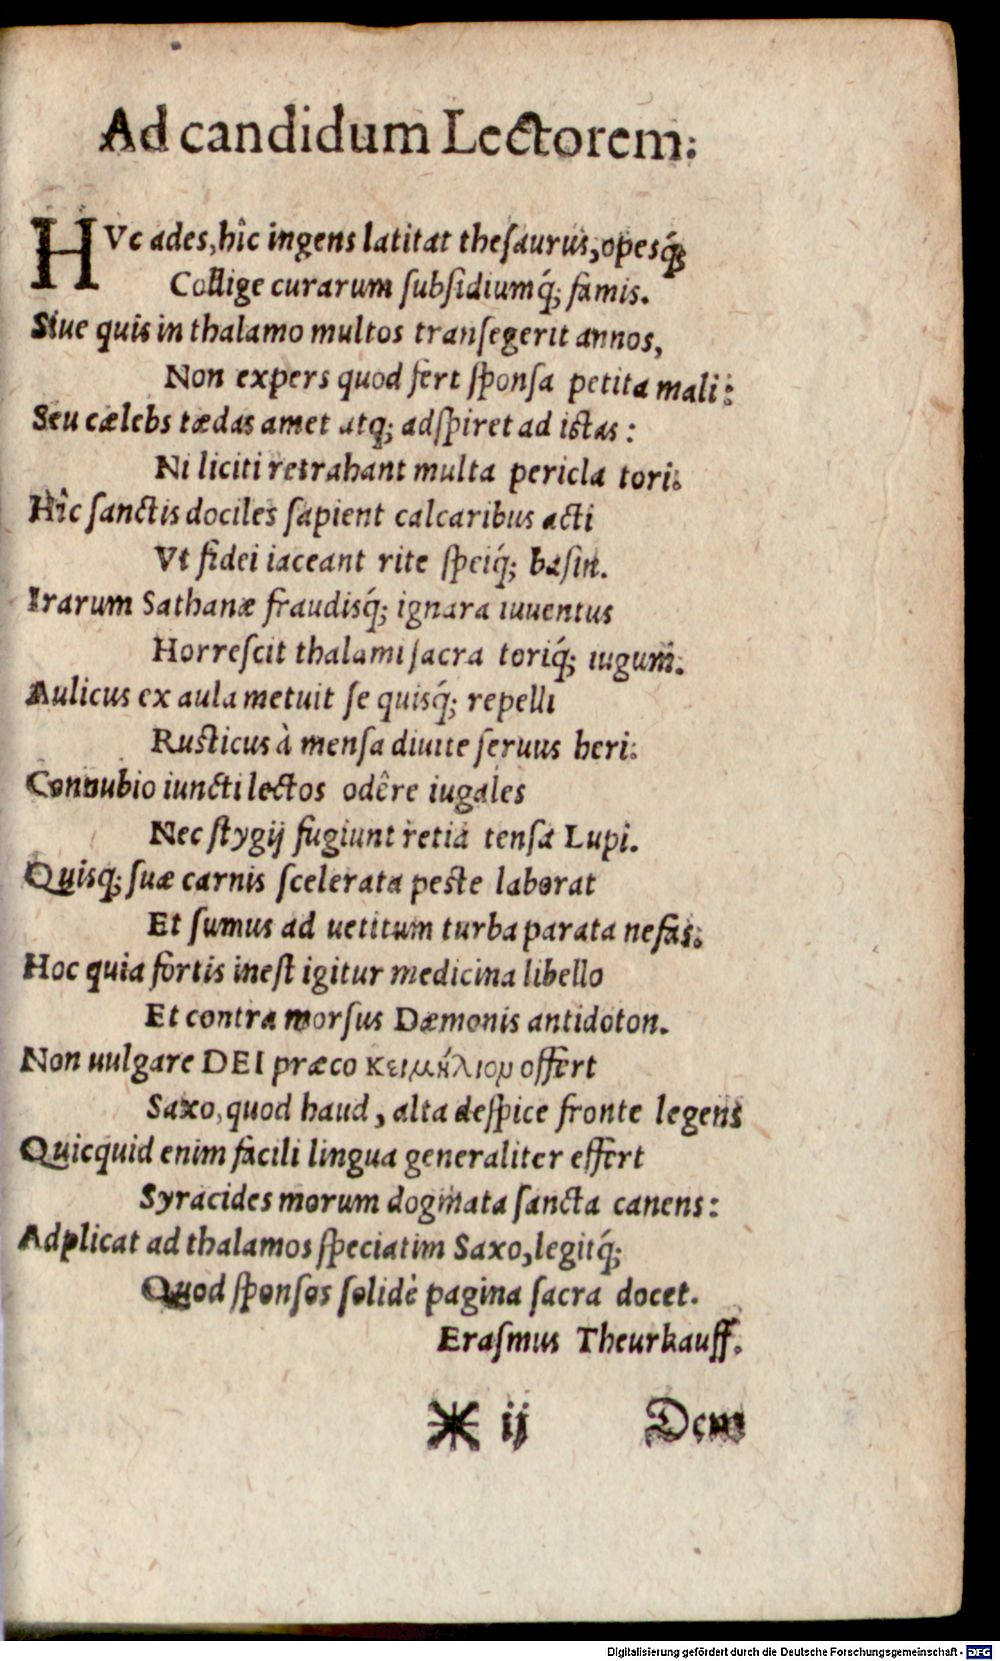 Ad candidum Lectorem:
HVc ades, hîc ingens latitat theſaurus, opesq́;
Collige curarum ſubſidiumq́; famis.
Siue quis in thalamo multos tranſegerit annos,
Non expers quod fert ſponſa petita mali:
Seu cælebs tædas amet atq; adſpiret ad iſtas:
Ni liciti retrahant multa pericla tori.
Hîc ſanctis dociles ſapient calcaribus acti
Vt fidei iaceant rite ſpeiq́; baſin.
Irarum Sathanæ fraudisq́; ignara iuuentus
Horreſcit thalami ſacra toriq́; iugum.
Aulicus ex aula metuit ſe quisq́; repelli
Ruſticus à menſa diuite ſeruus heri.
Connubio iuncti lectos odêre iugales
Nec ſtygij fugiunt retia tenſa Lupi.
Quisq́; ſuæ carnis ſcelerata peſte laborat
Et ſumus ad uetitum turba parata nefas.
Hoc quia fortis ineſt igitur medicina libello
Et contra morſus Dæmonis antidoton.
Non uulgare DEI præco κειμήλιον offert
Saxo, quod haud, alta deſpice fronte legens
Quicquid enim facili lingua generaliter effert
Syracides morum dogmata ſancta canens:
Adplicat ad thalamos ſpeciatim Saxo, legitq́;
Quod ſponſos ſolidè pagina ſacra docet.
Eraſmus Theurkauff.
ij Dem
Digitalisierung gefördert durch die Deutsche Forschungsgemeinschaft - DFG